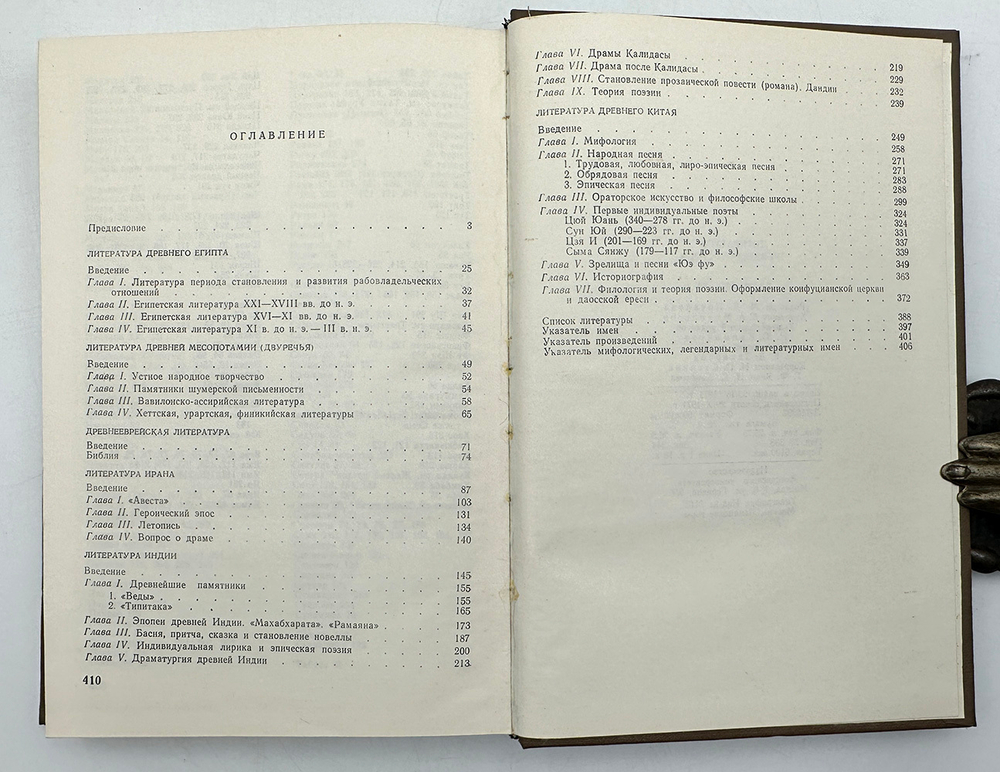 ОГЛАВЛЕНИЕ
Предисловие 3
ЛИТЕРАТУРА ДРЕВНЕГО ЕГИПТА
Введение 25
Глава I. Литература периода становления и развития рабовладельческих
отношений 32
Глава II. Египетская литература XXI—XVIII вв. до н. э. 37
Глава III. Египетская литература XVI—XI вв. до н. э. 41
Глава IV. Египетская литература XI в. до н. э. — III в. н. э. 45
ЛИТЕРАТУРА ДРЕВНЕЙ МЕСОПОТАМИИ (ДВУРЕЧЬЯ)
Введение 49
Глава I. Устное народное творчество 52
Глава II. Памятники шумерской письменности 54
Глава III. Вавилонско-ассирийская литература 58
Глава IV. Хеттская, урартская, финикийская литературы 65
ДРЕВНЕЕВРЕЙСКАЯ ЛИТЕРАТУРА
Введение 71
Библия 74
ЛИТЕРАТУРА ИРАНА
Введение 87
Глава I. «Авеста» 103
Глава II. Героический эпос 131
Глава III. Летопись 134
Глава IV. Вопрос о драме 140
ЛИТЕРАТУРА ИНДИИ
Введение 145
Глава I. Древнейшие памятники 155
1. «Веды» 155
2. «Типитака» 165
Глава II. Эпопеи древней Индии. «Махабхарата». «Рамаяна» 173
Глава III. Басня, притча, сказка и становление новеллы 187
Глава IV. Индивидуальная лирика и эпическая поэзия 200
Глава V. Драматургия древней Индии 213
410
Глава VI. Драмы Калидасы 219
Глава VII. Драма после Калидасы 229
Глава VIII. Становление прозаической повести (романа). Дандин 232
Глава IX. Теория поэзии 239
ЛИТЕРАТУРА ДРЕВНЕГО КИТАЯ
Введение 249
Глава I. Мифология 258
Глава II. Народная песня 271
1. Трудовая, любовная, лиро-эпическая песня 271
2. Обрядовая песня 283
3. Эпическая песня 288
Глава III. Ораторское искусство и философские школы 299
Глава IV. Первые индивидуальные поэты 324
Цюй Юань (340—278 гг. до н. э.) 324
Сун Юй (290—223 гг. до н. э.) 331
Цзя И (201—169 гг. до н. э.) 337
Сыма Сянжу (179—117 гг. до н. э.) 339
Глава V. Зрелища и песни «Юэ фу» 349
Глава VI. Историография 363
Глава VII. Филология и теория поэзии. Оформление конфуцианской церкви
и даосской ереси 372
Список литературы 388
Указатель имен 397
Указатель произведений 401
Указатель мифологических, легендарных и литературных имен 406